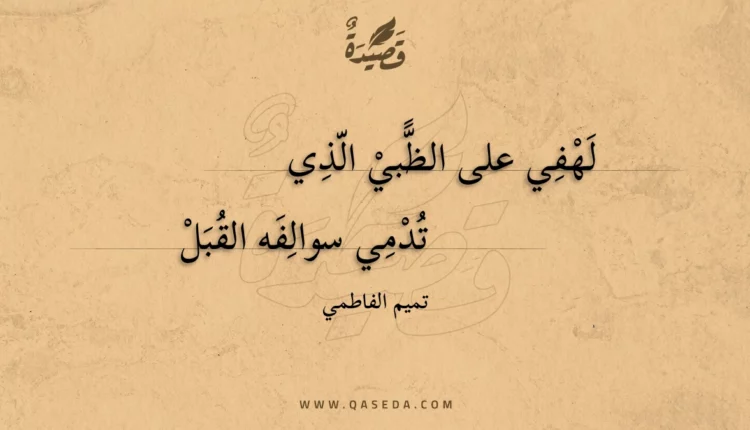 قَصِيدَةٌ
لَهْفِي على الظَّبيْ الّذِي
تُدْمِي سوالِفَه القُبَلْ
تميم الفاطمي
WWW.QASEDA.COM